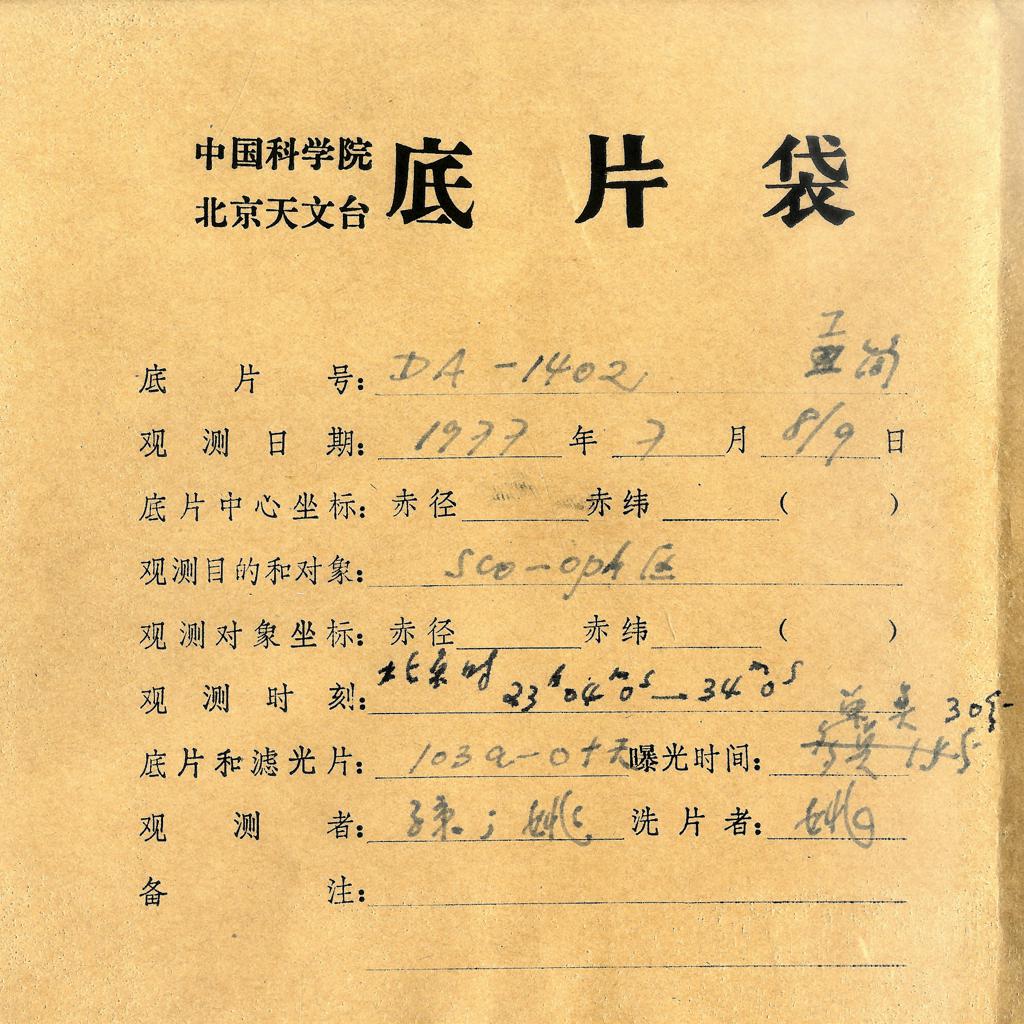 中国科学院
北京天文台 底片袋
底片号: DA-1402
观测日期: 1977年 7月 8/9日
底片中心坐标: 赤径 赤纬 ( )
观测目的和对象: Sco-oph 区
观测对象坐标: 赤径 赤纬 ( )
观测时刻: 北京时 23h04m0s—34m0s
底片和滤光片: 103a-O+无 曝光时间: 单 30分
观测者: 孙; 姚 洗片者: 姚
备注: